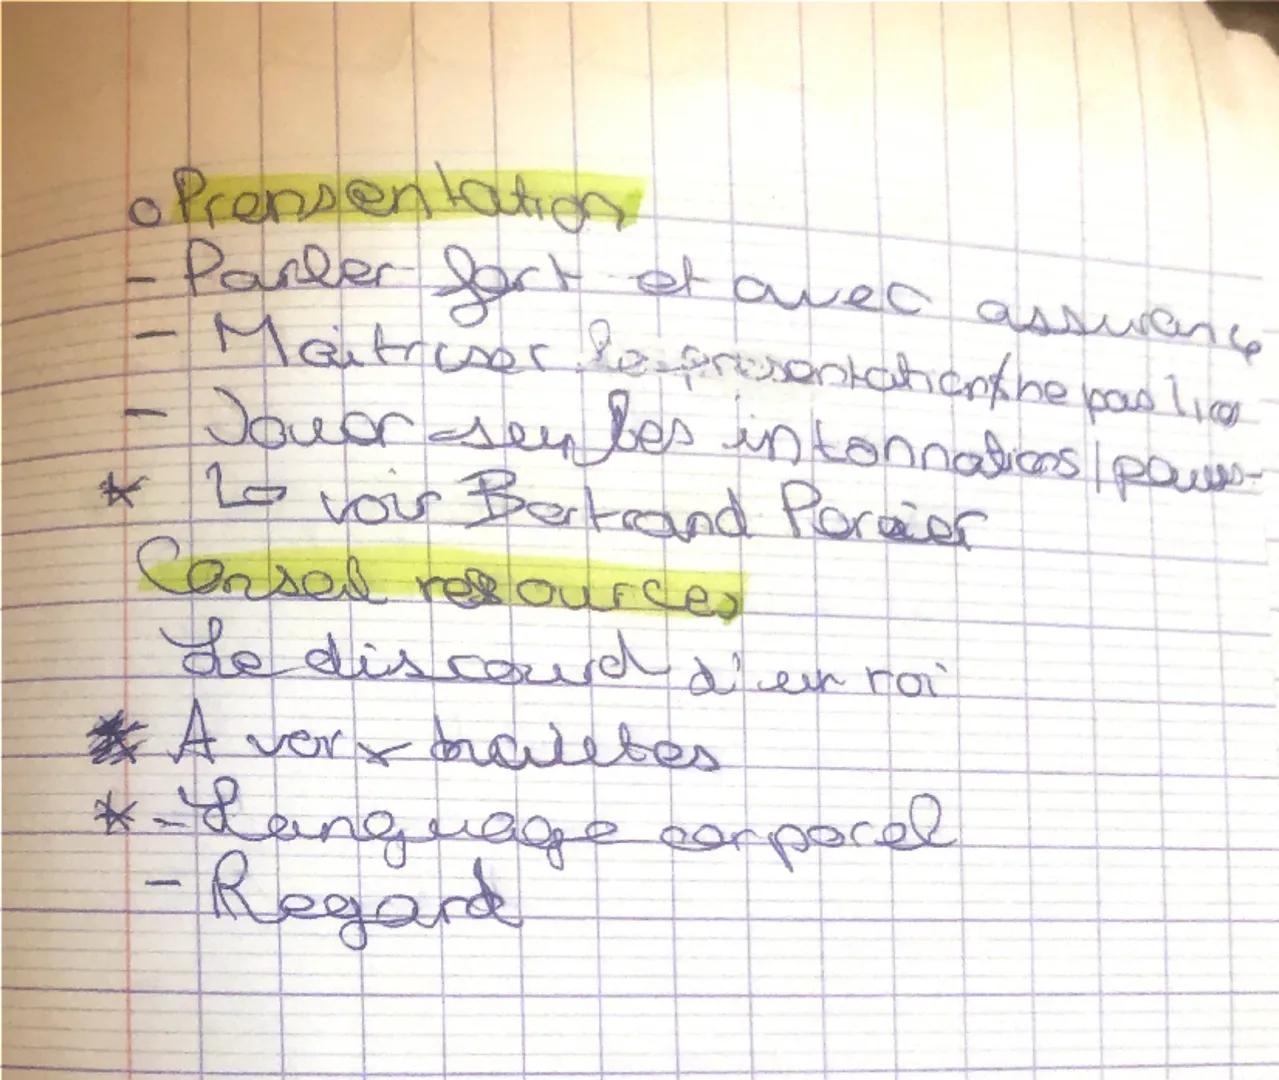 o Prensentation
- Parler fort et avec assurance
- Maitriser la presentation/ne pas lire
- Jouer sur les intonnations/pauses
* ↳ voir Bertrand Porier
Conseil ressources
Le discourd d'un roi
* A voir x
* - Language corporel
- Regard